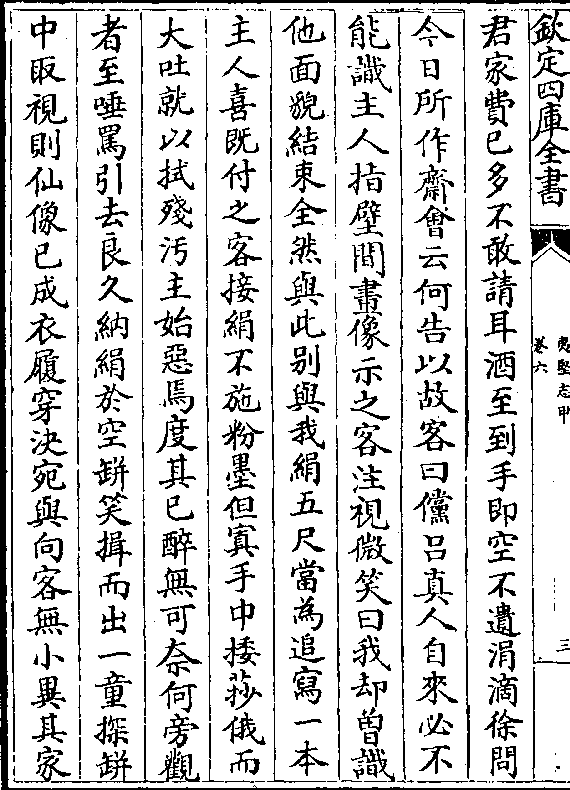 欽定四庫全書
夷堅志甲
卷六
三
君家費已多不敢請耳酒至到手即空不遺涓滴徐問
今日所作齋會云何告以故客曰儻呂真人自來必不
能識主人指壁間畫像示之客注視微笑曰我却曽識
他面貌結束全然與此别與我絹五尺當為追寫一本
主人喜既付之客接絹不施粉墨但寘手中捼莎俄而
大吐就以拭殘汚主始惡焉度其已醉無可奈何旁觀
者至唾罵引去良久納絹於空缾笑揖而出一童探缾
中取視則仙像已成衣履穿決宛與向客無小異其家